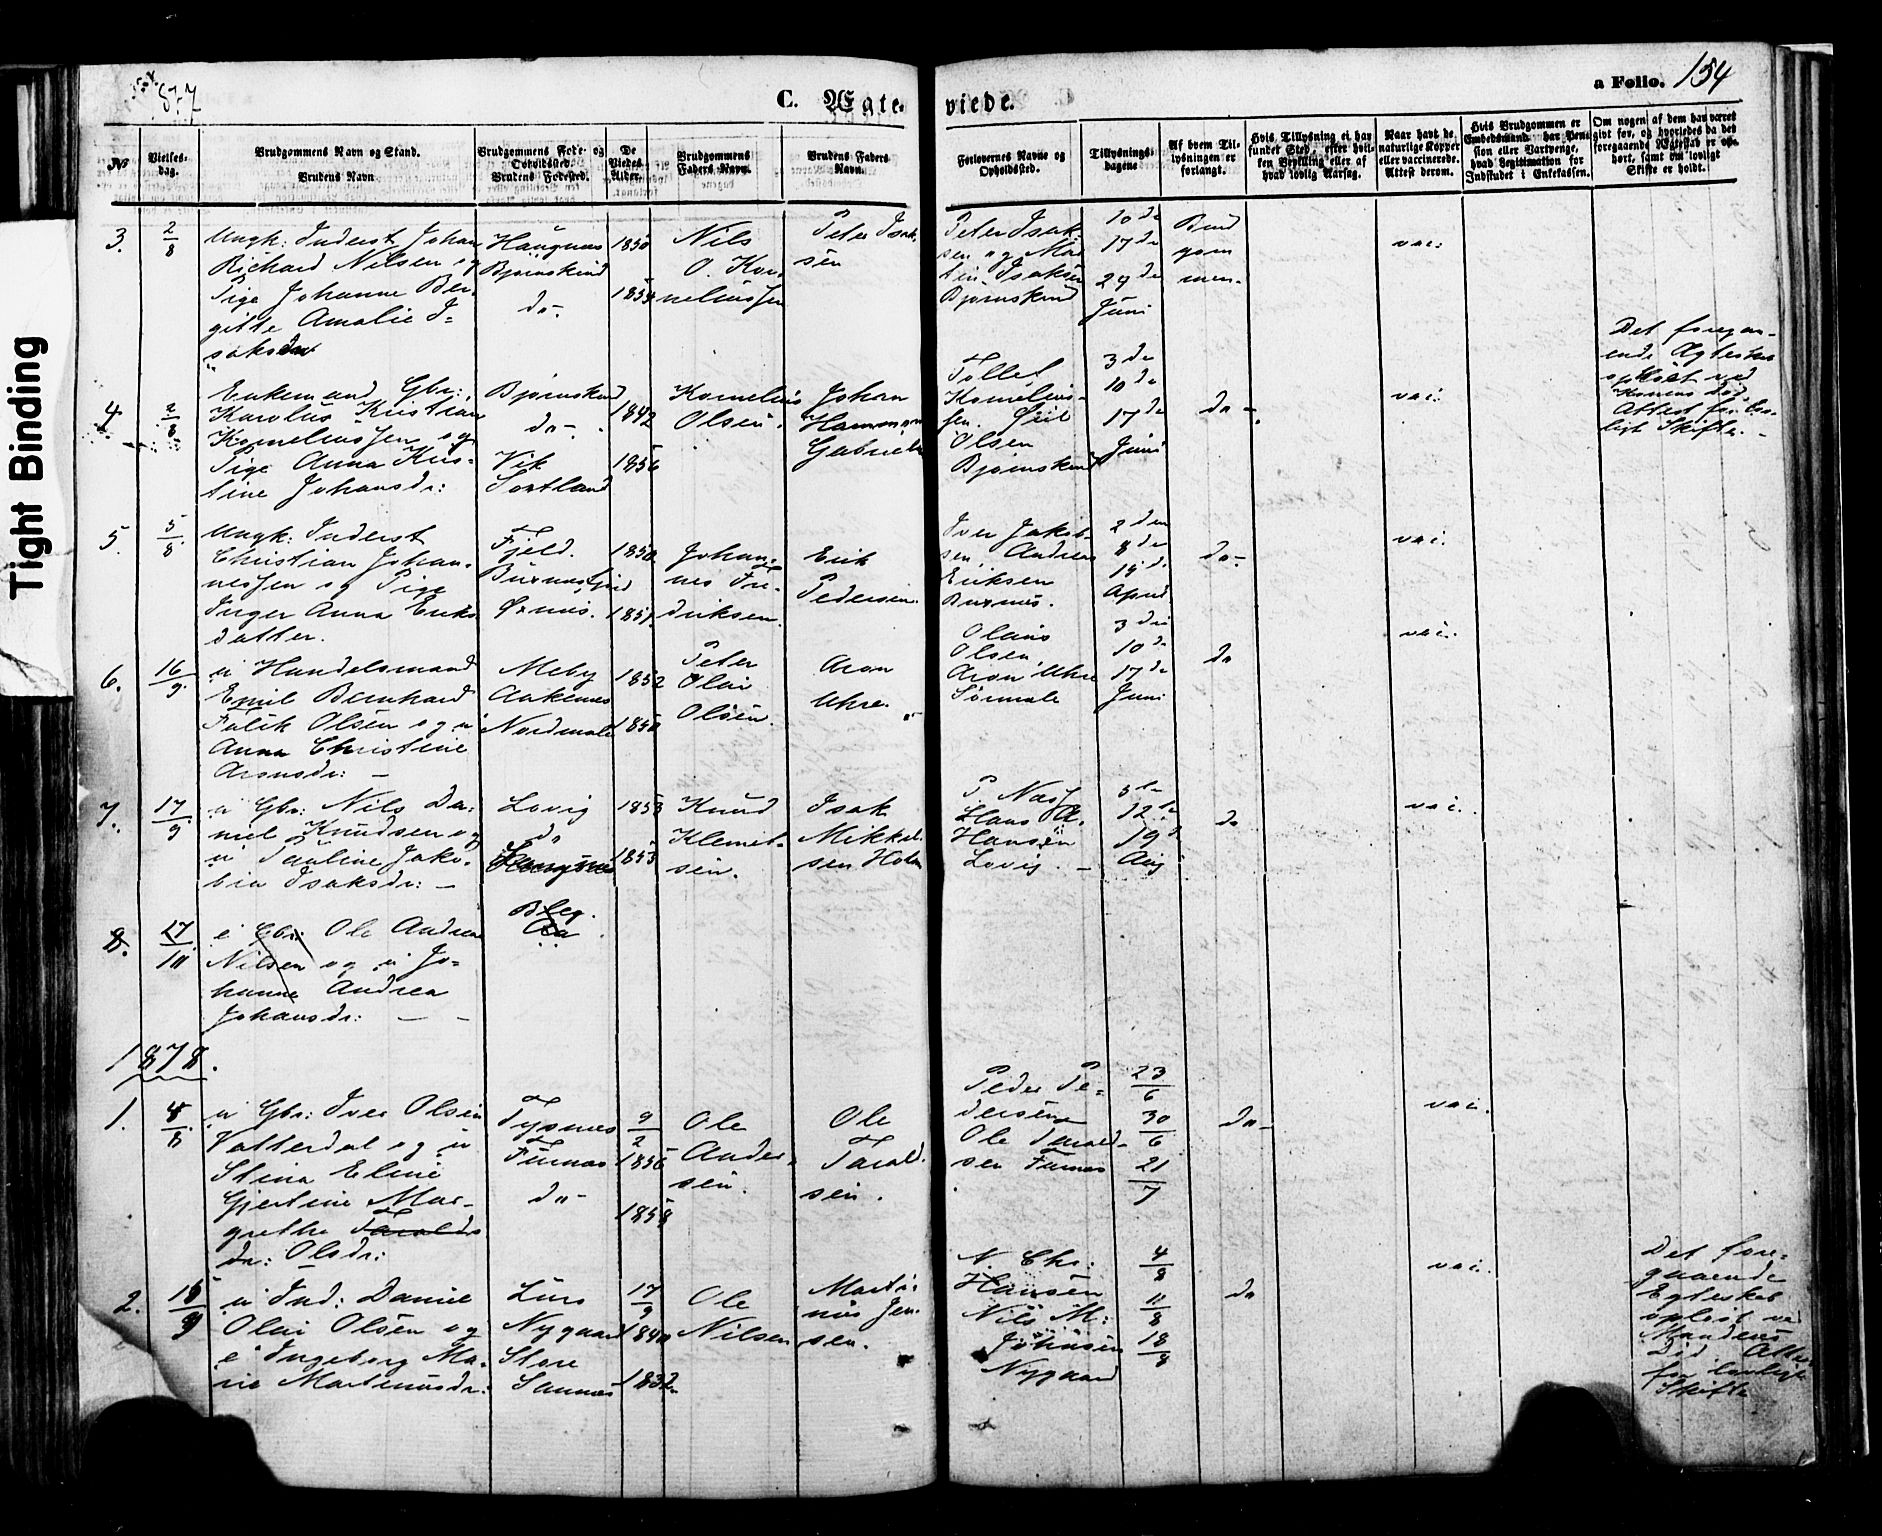 Tight Binding
C. Ægte-
viede.
a Folio. 154
№
Vielses-
dag.
Brudgommens Navn og Stand.
Brudens Navn
Brudgommens Føde- og
Opholdssted.
Brudens Fødested.
De
Viedes
Alder.
Brudgommens
Faders Navn.
Brudens Faders
Navn.
Forlovernes Navne og
Opholdssted.
Tillysnings-
dagene
Af hvem Til-
lysningen er
forlangt.
Hvis Tillysning ei har
fundet Sted, efter hvil-
ken Bevilling eller af
hvad lovlig Aarsag.
Naar havt de
naturlige Kopper
eller vaccinerede.
Attest derom.
Hvis Brudgommen er
Embedsmand har Pen-
sion eller Vartpenge,
hvad Legitimation for
Indskudet i Enkekassen.
Om nogen af dem har været
gift før, og hvorledes da det
foregaaende Ægteskab er op-
hørt, samt om lovligt
Skifte er holdt.
3.
2/8
Ungk: Inderst Johan
Richard Nilsen og
Pige Johanne Ber-
gitte Amalie I-
saksdat
Haugnes
Bjørnskind
do-
1850
1854
Nils
O. Kor-
neliussen
Peter Isak-
sen
Peter Isak-
sen og Mar
tin Isaksen
Bjørnskind
10de
17de
24de
Juni
Brud
gom
men-
vac:
4
2/8
Enkemand Gbr:
Karolus Kristian
Korneliussen og
Pige Anna Kris-
tine Johansdr:
Bjørnskind
do-
Vik
Sortland
1842
1856
Kornelius
Olsen.
Johan
Hammon
Gabriels
Tollef
Kornelius-
sen.
Olsen
Bjørnskind
3de
10de
17de
Juni
do-
vac.
Det foregaa-
ende Ægteskab
opløst ved
Konens død
Attest for lov-
ligt Skifte.
5.
5/8
Ungk: Inderst
Christian Johan-
nessen og Pige
Inger Anna Eriks
datter.
Fjeld.
Ørnes.
1850
1851.
Johan-
nes Fre-
driksen.
Erik
Pedersen.
Iver Jakob-
sen, Andreas
Eriksen
2den
8de
15de
April
do-
vac.
6.
16/9.
u Handelsmand
Emil Bernhard
Falik Olsen og u
Anna Christine
Aronsdr:
Meby
Aakernes
Nordmele
1852
1850
Peter
Olai
Olsen.
Aron
Uhre.
Olaus
Olsen,
Aron Uhre
Sørmele
3die
10de
17de
Juni
do
vac.
7.
17/9
u Gbr: Nils Da-
niel Knudsen og
u Pauline Jako-
bia Isaksdr:
Lovig
do
1853
1853
Knud
Klemet-
sen.
Isak
Mikkel-
sen Holm
Hans A.
Hansen
Lovig.
3de
12de
19de
Aug
do
vac.
8.
27/10
e Gbr: Ole Andreas
Nilsen og u Jo-
hanne Andrea
Johansdr:
Bleg.
Aa
1878.
1.
4/8
u Gbr: Iver Olsen
Vatterdal og u
Stina Eline
Gjertine Mar-
grethe Taralds
dr: Olsdr:
Tysnes
Furnes
do-
9/2
1856
1858
Ole
Ander-
sen.
Ole
Tarald-
sen.
Peder Pe-
dersen
Ole Tarald-
sen Furnes
23/6
30/6
21/7
do-
vac.
2.
15/9
u Ind: Daniel
Olai Olsen og
e Ingeborg Ma-
rie Martinusdr:
Lurs
Nygaard
Store
Sannes
17/9
1840
1832
Ole
Nilsen
Marti-
nus Jen-
sen.
N. Chr:
Hansen
Nils M:
Johnsen
Nygaard
4/8
11/8
18/8
do
vac.
Det fore-
gaaende
Egteskab
opløst ved
Mandens
Død Attes
for lovligt
Skifte